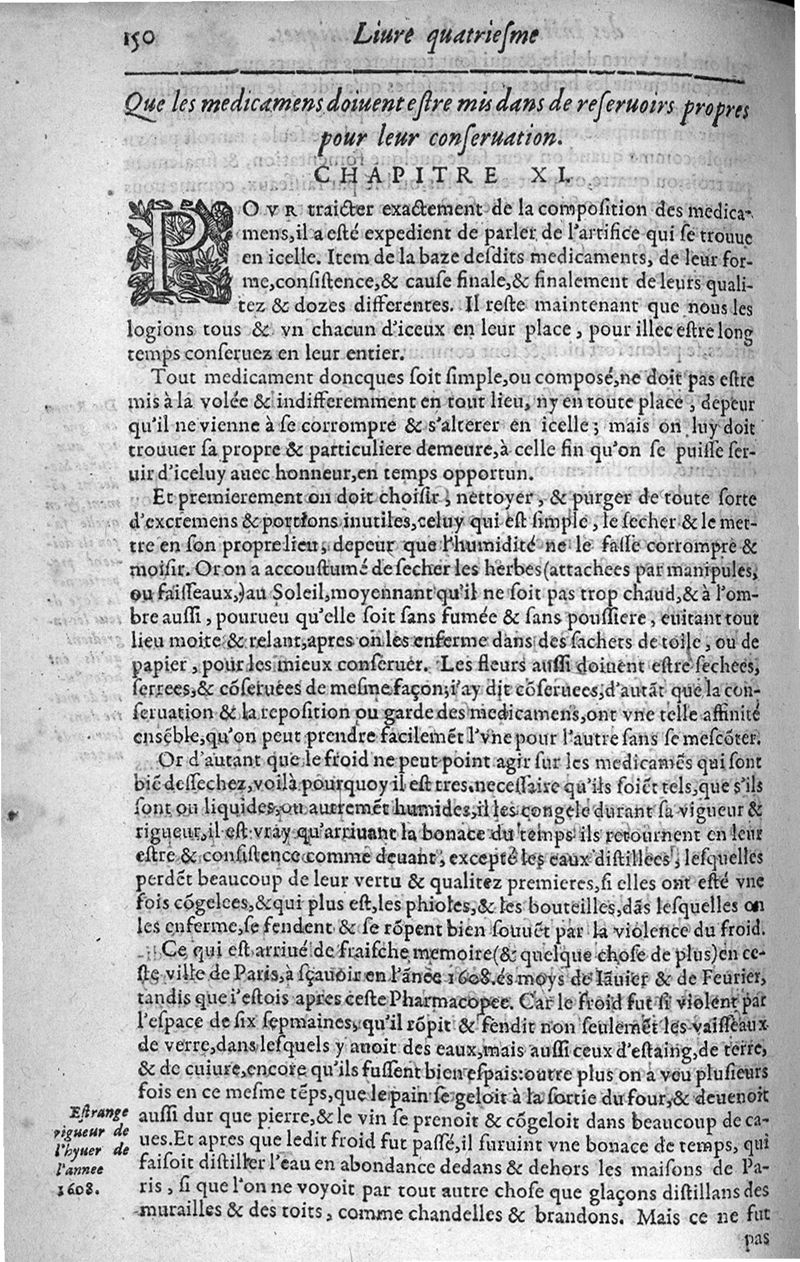 150 Liure quatriesme
Que les medicamens doiuent estre mis dans de reseruoirs propres
pour leur conseruation.
CHAPITRE XI.
POVR traicter exactement de la composition des medica-
mens, il a esté expedient de parler de l'artifice qui se trouue
en icelle. Item de la baze desdits medicaments, de leur for-
me, consistence, & cause finale, & finalement de leurs quali-
tez & dozes differentes. Il reste maintenant que nous les
logions tous & vn chacun d'iceux en leur place, pour illec estre long
temps conseruez en leur entier.
Tout medicament doncques soit simple, ou composé, ne doit pas estre
mis à la volée & indifferemment en tout lieu, ny en toute place, depeur
qu'il ne vienne à se corrompre & s'alterer en icelle; mais on luy doit
trouuer sa propre & particuliere demeure, à celle fin qu'on se puisse ser-
uir d'iceluy auec honneur, en temps opportun.
Et premierement on doit choisir, nettoyer, & purger de toute sorte
d'excremens & portions inutiles, celuy qui est simple, le secher & le met-
tre en son propre lieu, depeur que l'humidité ne le fasse corrompre &
moisir. Or on a accoustumé de secher les herbes (attachees par manipules,
ou faisseaux,) au Soleil, moyennant qu'il ne soit pas trop chaud, & à l'om-
bre aussi, pourueu qu'elle soit sans fumée & sans poussiere, euitant tout
lieu moite & relant, apres on les enferme dans des sachets de toile, ou de
papier, pour les mieux conseruer. Les fleurs aussi doiuent estre sechees,
serrees, & cõseruées de mesme façon; i'ay dit cõseruees, d'autãt que la con-
seruation & la reposition ou garde des medicamens, ont vne telle affinité
ensẽble, qu'on peut prendre facilemẽt l'vne pour l'autre sans se mescõter.
Or d'autant que le froid ne peut point agir sur les medicamẽs qui sont
biẽ dessechez, voilà pourquoy il est tres-necessaire qu'ils soiẽt tels, que s'ils
sont ou liquides, ou autremẽt humides, il les congele durant sa vigueur &
rigueur, il est vray qu'arriuant la bonace du temps ils retournent en leur
estre & consistence comme deuant, excepté les eaux distillees, lesquelles
perdẽt beaucoup de leur vertu & qualitez premieres, si elles ont esté vne
fois cõgelees, & qui plus est, les phioles, & les bouteilles, dãs lesquelles on
les enferme, se fendent & se rõpent bien souuẽt par la violence du froid.
Ce qui est arriué de fraische memoire (& quelque chose de plus) en ce-
ste ville de Paris, à sçauoir en l'ãnee 1608. és moys de Iãuier & de Feurier,
tandis que i'estois apres ceste Pharmacopee. Car le froid fut si violent par
l'espace de six sepmaines, qu'il rõpit & fendit non seulemẽt les vaisseaux
de verre, dans lesquels y auoit des eaux, mais aussi ceux d'estaing, de terre,
& de cuiure, encore qu'ils fussent bien espais: outre plus on a veu plusieurs
fois en ce mesme tẽps, que le pain se geloit à la sortie du four, & deuenoit
aussi dur que pierre, & le vin se prenoit & cõgeloit dans beaucoup de ca-
ues. Et apres que ledit froid fut passé, il suruint vne bonace de temps, qui
faisoit distiller l'eau en abondance dedans & dehors les maisons de Pa-
ris, si que l'on ne voyoit par tout autre chose que glaçons distillans des
murailles & des toits, comme chandelles & brandons. Mais ce ne fut
pas
Estrange
rigueur de
l'hyuer de
l'annee
1608.